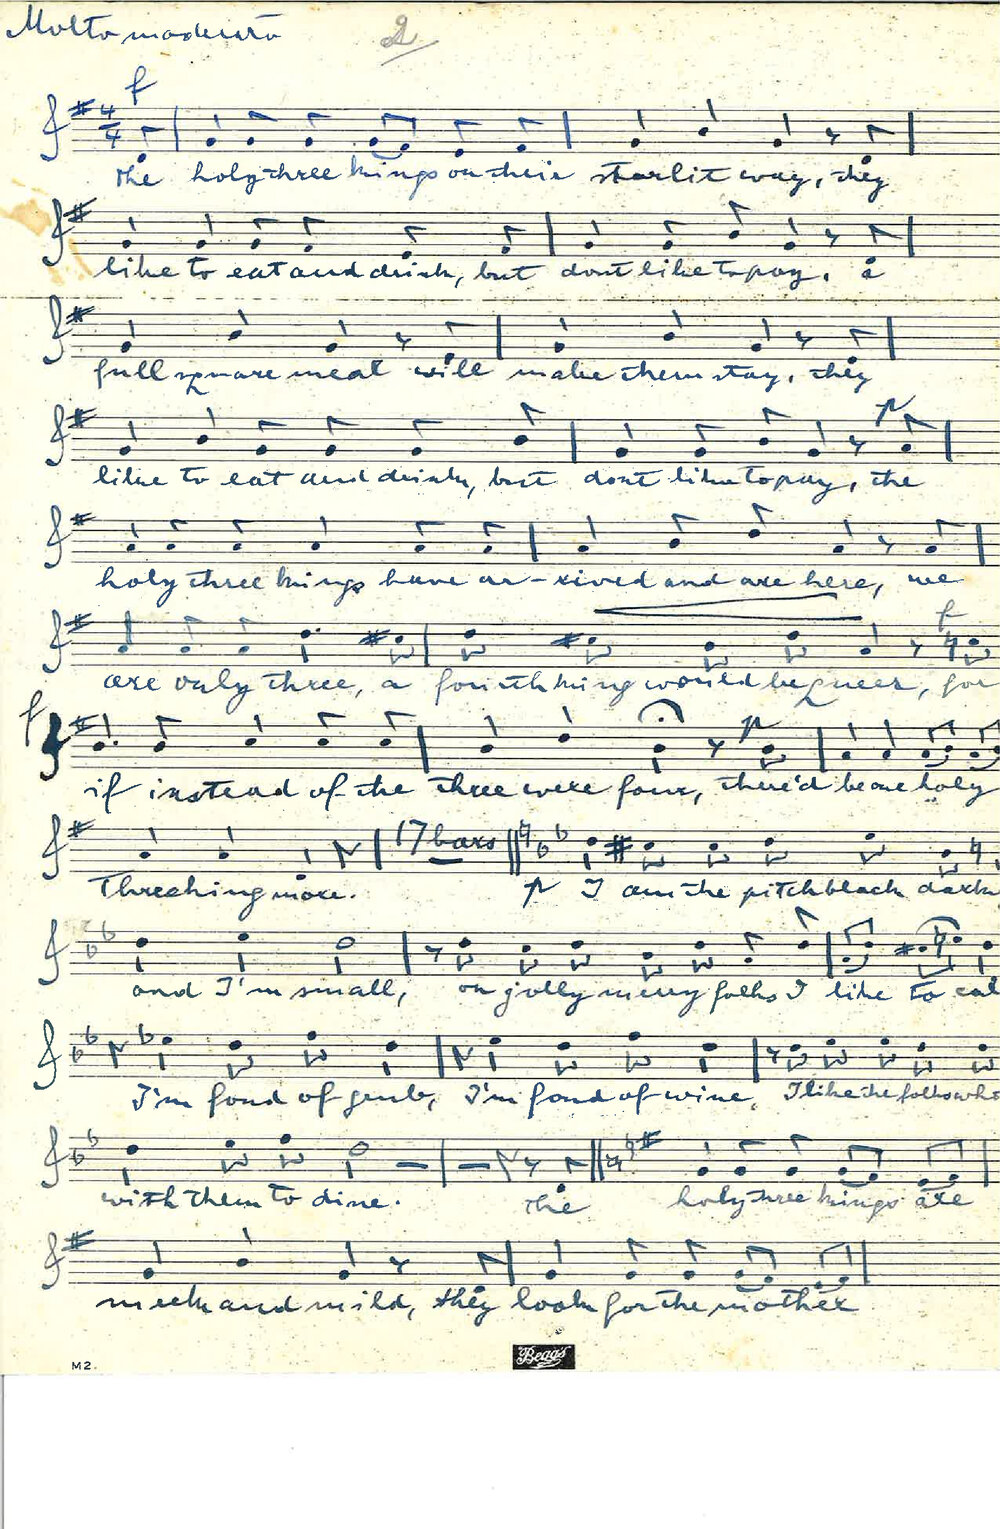 Molto moderato 2
f
4 4
The holy three kings on their starlit way, they
like to eat and drink, but dont like to pay. a
full square meal will make them stay, they
p
like to eat and drink, but dont like to pay, the
holy three kings have ar-rived and are here, we
f
are only three, a fourth king would be queer, for
f p
if instead of the three were four, there'd be one holy
17 bars
Three king more. p I am the pitchblack dark
and I'm small, on jolly merry folks I like to cal
I'm fond of grub, I'm fond of wine, I like the folks who
with them to dine. The holy three kings are
meek and mild, they look for the mother
M2. Beggs